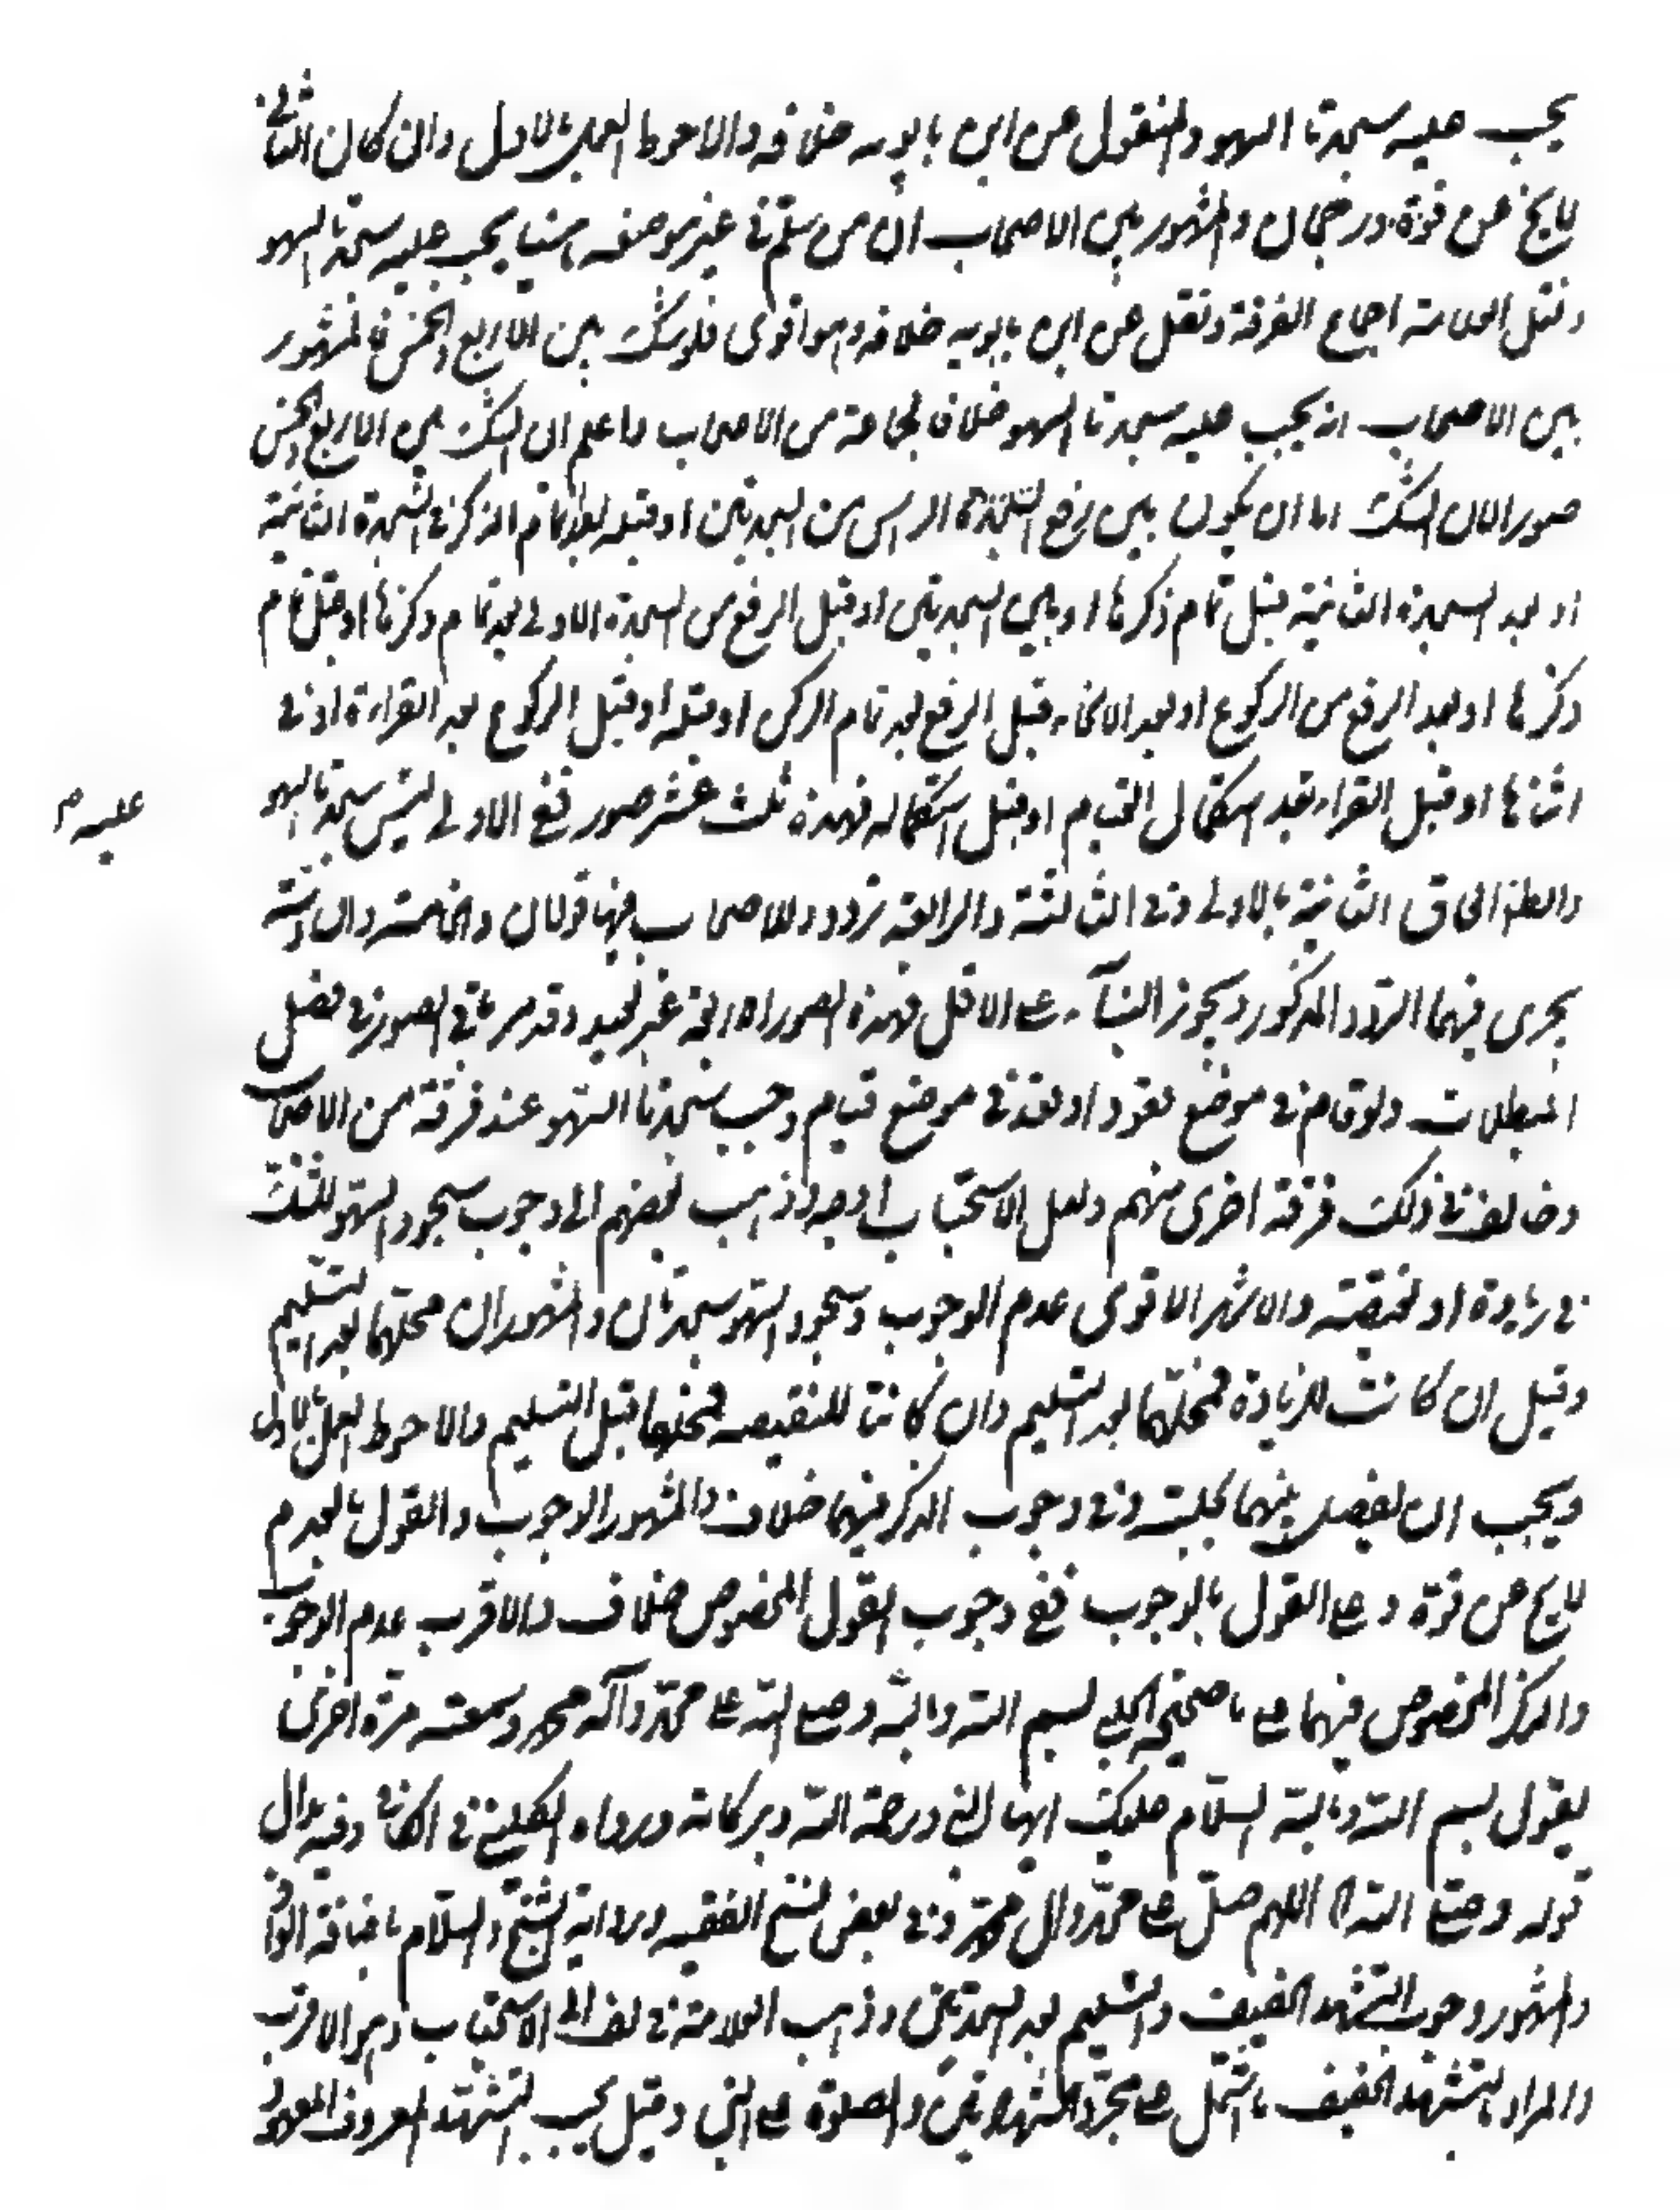 يجب عليه سجدتا السهو والمنقول عن ابن بابويه خلافه والاحوط العمل بالاول وان كان الثاني
لا يخ عن قوة ورجحان والمشهور بين الاصحاب ان من سلم في غير موضعه ناسيا يجب عليه سجدتا السهو
ونقل العلامة اجماع الفرقة ونقل عن ابن بابويه خلافه وهو اقوى فلو شك بين الاربع والخمس فالمشهور
بين الاصحاب انه يجب عليه سجدتا السهو خلافا لجماعة من الاصحاب واعلم ان الشك بين الاربع والخمس
صورا لان الشك اما ان يكون بين رفع الراس من السجدتين او قبله بعد تمام الذكر في السجدة الثانية
او بعد السجدة الثانية قبل تمام ذكرها او بين السجدتين او قبل الرفع من السجدة الاولى بعد تمام ذكرها او قبل تمام
ذكرها او بعد الرفع من الركوع او بعد الانحناء قبل الرفع بعد تمام الذكر او قبله او قبل الركوع بعد القراءة او في
اثنائها او قبل القراءة بعد استكمال القيام او قبل استكماله فهذه ثلث عشر صور ففي الاولى ليس سجدتا السهو
عليه م
والظ الحاق الثانية بالاولى وفي الثالثة والرابعة تردد وللاصحاب فيها قولان والخامسة والسادسة
يجرى فيهما التردد المذكور ويجوز البناء على الاقل فهذه الصور الرابعة غير بعيد وقد مر باقى الصور في فصل
المبطلات ولو قام في موضع قعود او قعد في موضع قيام وجب سجدتا السهو عند فرقة من الاصحاب
وخالف في ذلك فرقة اخرى منهم ولعل الاستحباب اوجه وذهب بعضهم الى وجوب سجود السهو للشك
في زيادة او نقيصة والاشهر الاقوى عدم الوجوب وسجود السهو سجدتان والمشهور ان محلهما بعد التسليم
وقيل ان كانت للزيادة فمحلهما بعد التسليم وان كانتا للنقيصه فمحلهما قبل التسليم والاحوط العمل بالاول
ويجب ان يفصل بينهما بجلسة وفي وجوب الذكر فيهما خلاف والمشهور الوجوب والقول بالعدم
لا يخ عن قوة وعلى القول بالوجوب ففي وجوب القول المخصوص خلاف والاقرب عدم الوجوب
والذكر المخصوص فيهما على ما صحيحة الحلبي بسم الله وبالله وصلى الله على محمد وآله محمد وسمعته مرة اخرى
يقول بسم الله وبالله السلام عليك ايها النبي ورحمة الله وبركاته ورواه الكليني في الكافي وفيه بدل
قوله وصلى الله اللهم صل على محمد وال محمد وفي بعض نسخ الفقيه ورواية الشيخ والسلام باضافة الواو
والمشهور وجوب التشهد الخفيف والتسليم بعد السجدتين وذهب العلامة في لف الى الاستحباب وهو الاقرب
والمراد بالتشهد الخفيف ما اشتمل على مجرد الشهادتين والصلوة على النبي وقيل يجب التشهد المعروف المعهود